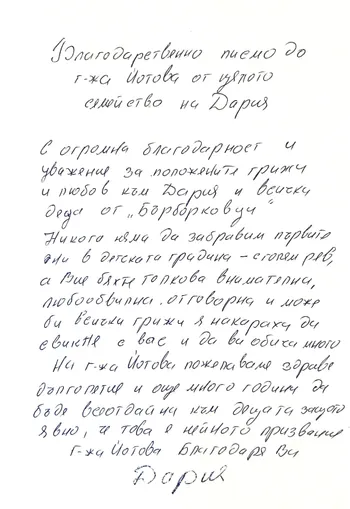 Благодарствено писмо до
г-жа Йотова от цялото
семейство на Дария
С огромна благодарност и
уважение за положените грижи
и любов към Дария и всички
деца от „Бърборковци“
Никога няма да забравим първите
дни в детската градина – голям рев,
а Вие бяхте толкова внимателна,
любвеобвилна отговорна и може
би всички грижи я накараха да
свикне с вас и да ви обича много
На г-жа Йотова пожелаваме здраве
дълголетие и още много години да
бъде всеотдайна към децата защото
явно, че това е нейното призвание
г-жа Йотова Благодаря Ви
Дария